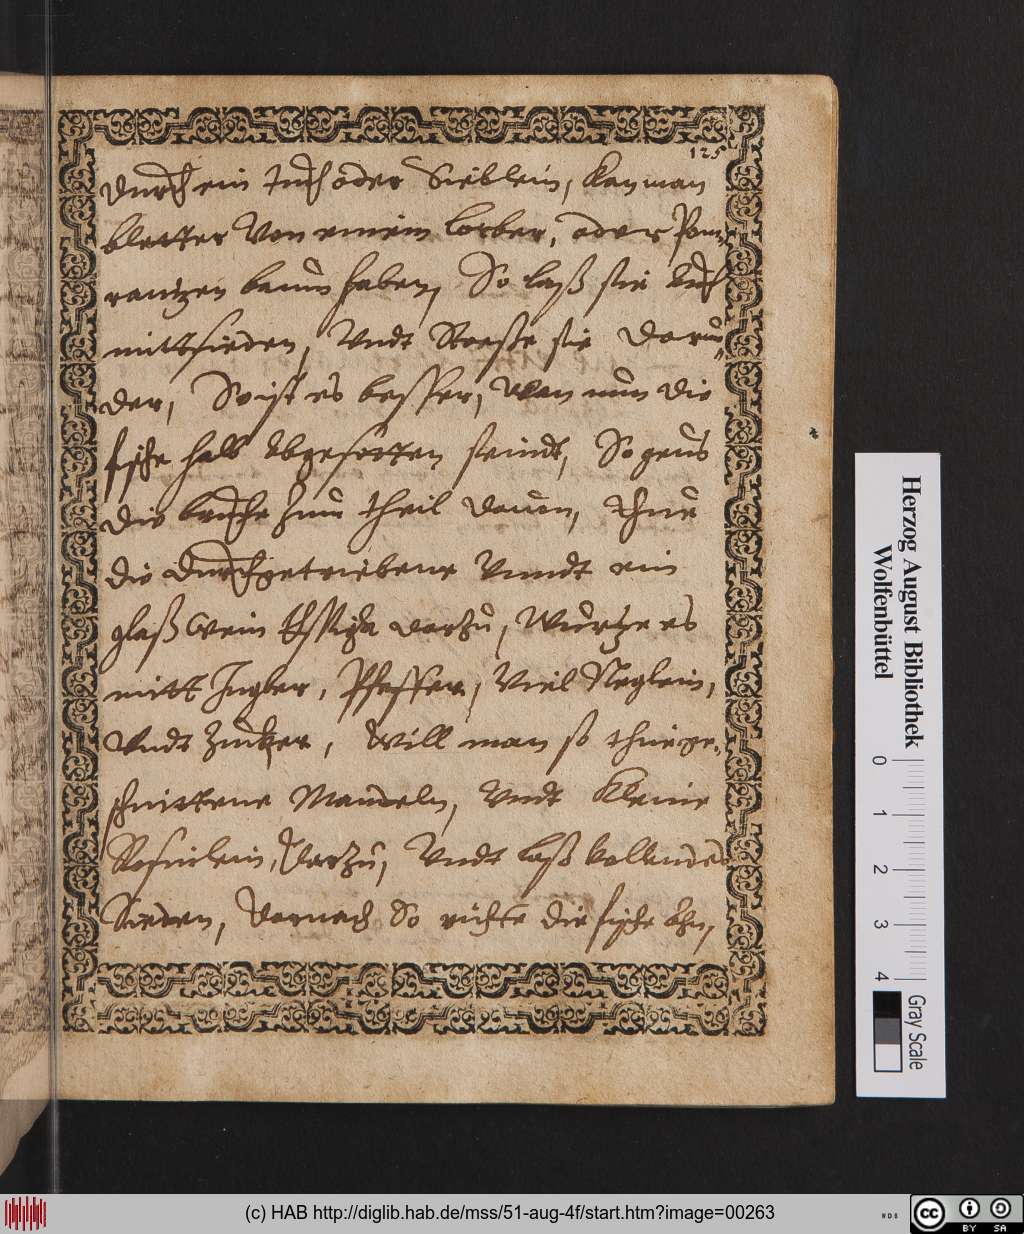 125
durch ein tuch oder Sieblein, Kan man
bletter Von einem lorber, oder Pom„
rantzen baum haben, So laß sie auch
mittsieden, Vndt Stosse sie darun„
der, So ist es besser, Wan nun die
fische halb abgesotten seindt, So geus
die brüehe zum theil dauon, thue
die durchgetriebene Vnndt ein
glaß Wein Essigk darzu, Würtze es
mitt Ingber, Pfeffer, Viel Neglein,
Vndt Zucker, Will man so thue ge„
schnittene Mandeln, Vndt Kleine
Rosinlein, darzu, Vndt laß vollendes
Sieden, darnach So richte die fische ahn,
Herzog August Bibliothek
Wolfenbüttel
0 1 2 3 4
Gray Scale
(c) HAB http://diglib.hab.de/mss/51-aug-4f/start.htm?image=00263
WDB
cc BY SA